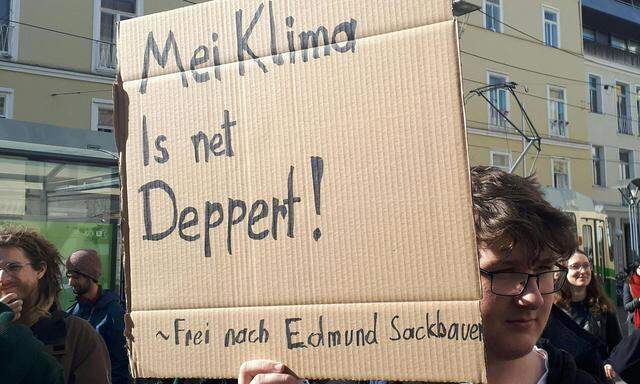 Mei Klima
Is net
Deppert!
~Frei nach Edmund Sackbauer